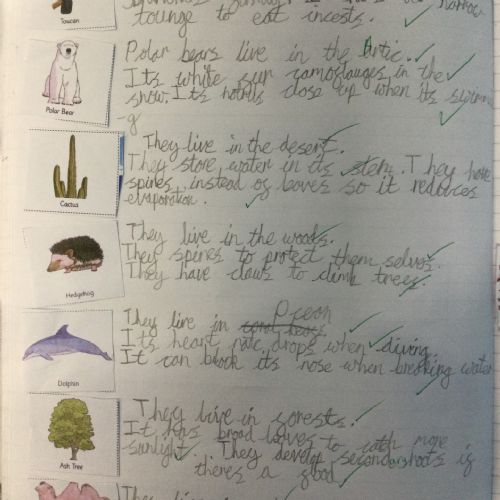 Toucan
tounge to eat incests.
Polar bears live in the Artic.
Its white fur camoflauges in the
snow. Its nostrils close up when its swimm
-g
Polar Bear
They live in the desert.
They store water in its stem. They have
spines instead of leaves so it reduces
evaporation.
Cactus
They live in the woods.
They spines to protect them selves.
They have claws to climb trees.
Hedgehog
They live in Ocean
Its heart rate drops when diving.
It can block its nose when breaking water
Dolphin
They live in forests.
It has broad leaves to catch more
sunlight. They develop second shoots if
theres a flood
Ash Tree
They